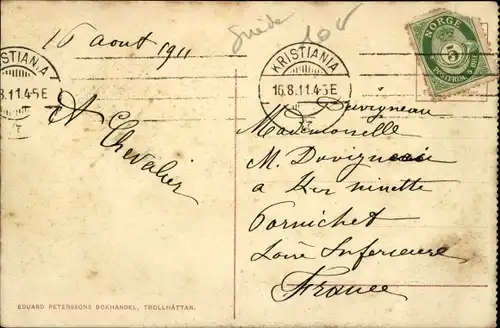 16 aout 1911
Suède
10
KRISTIANIA
16.8.11.4-5E
KRISTIANIA
16.8.11.4-5E
NORGE
5
A Chevalier
Duvigneau
Mademoiselle
M. Duvigneau
a Ker ninette
Pornichet
Loire Inferieure
France
EDUARD PETERSSONS BOKHANDEL, TROLLHÄTTAN.